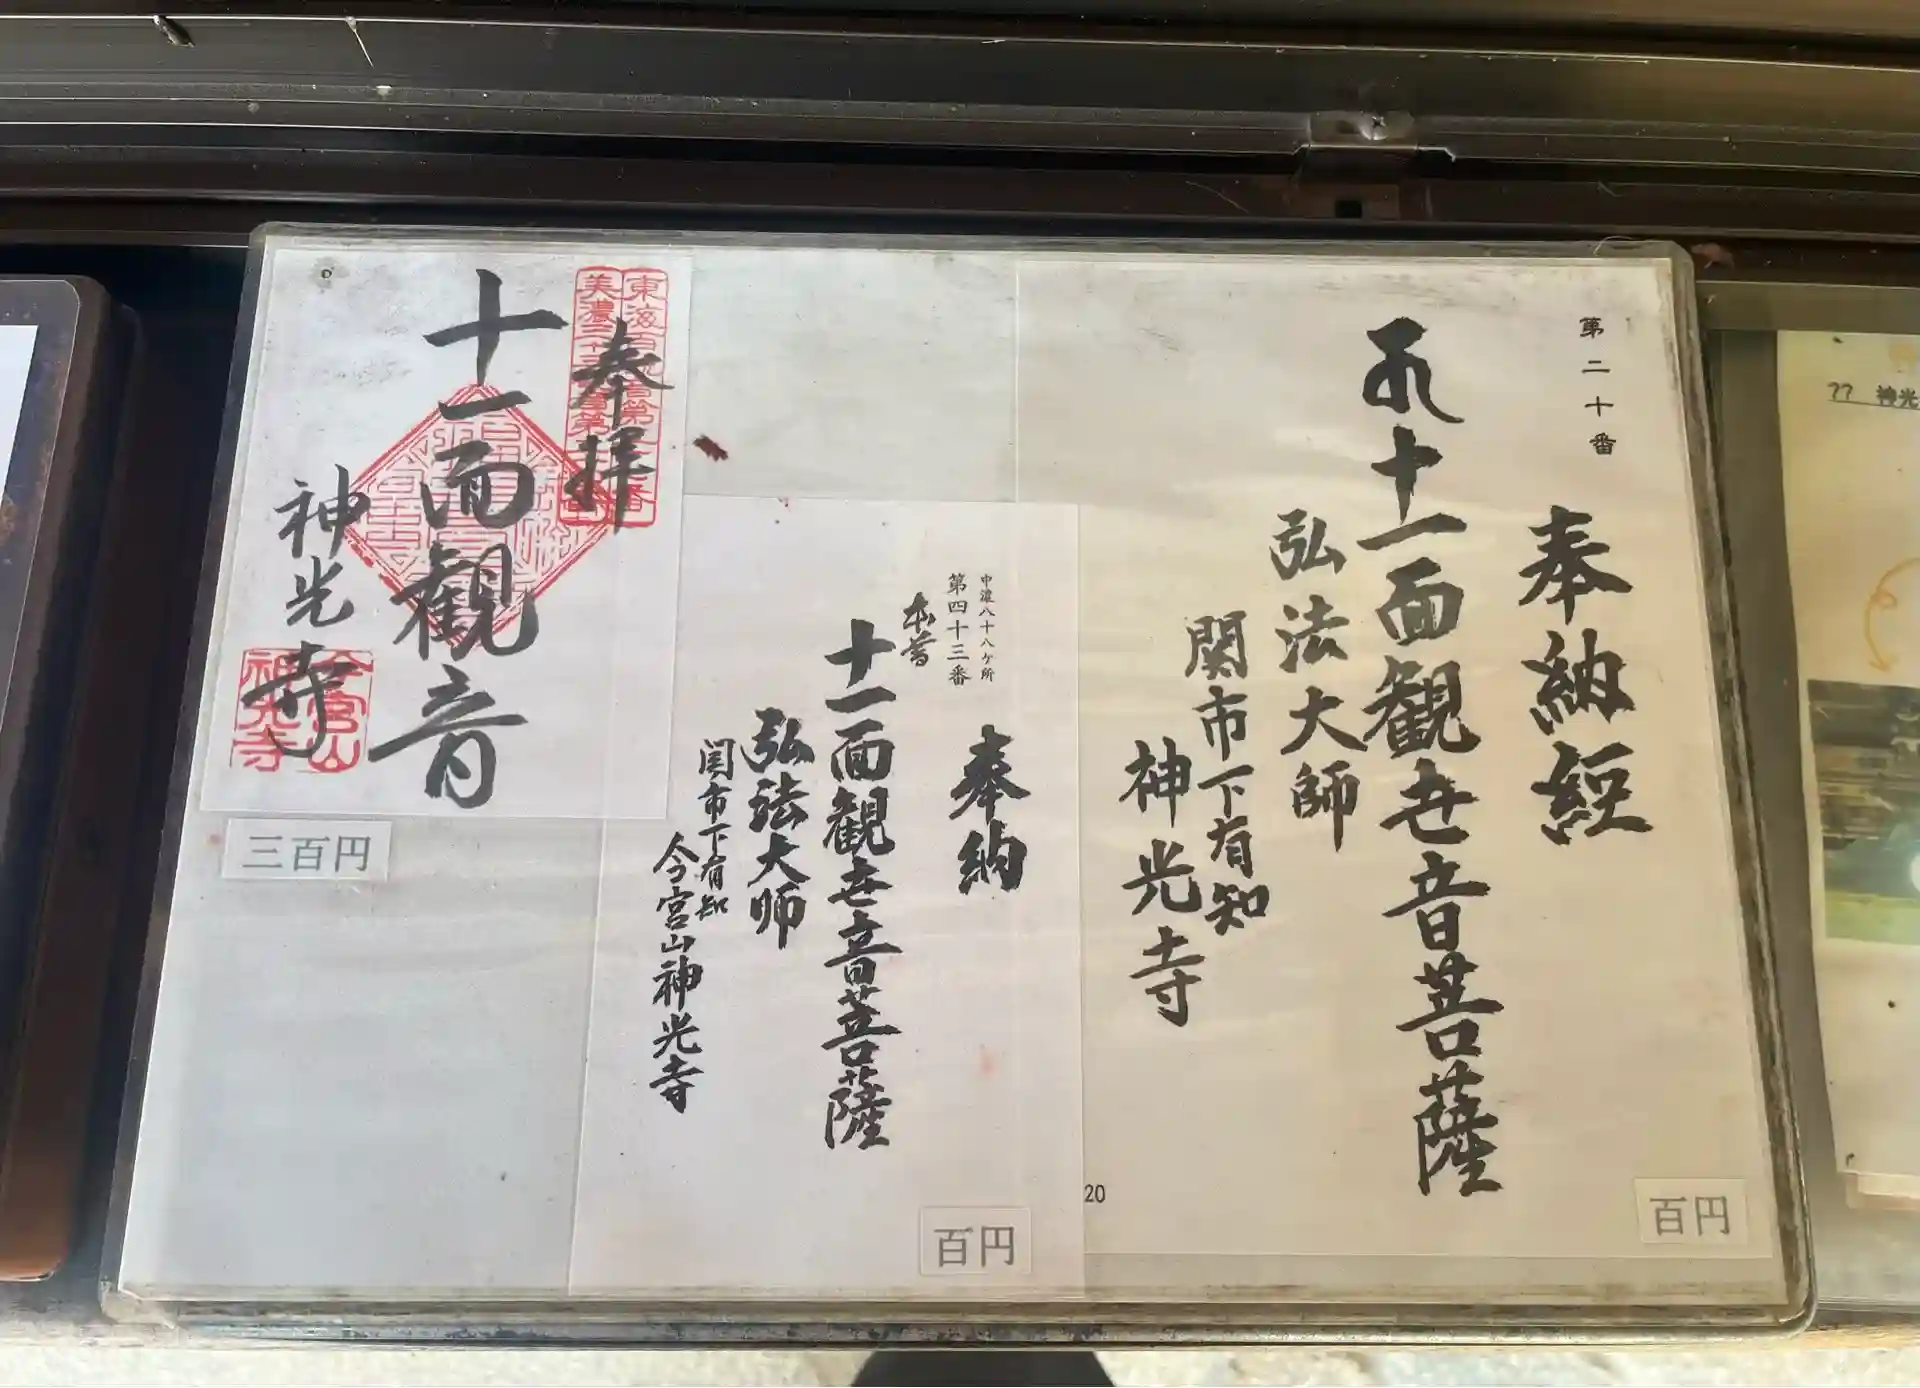 第二十番
奉納経
十一面観世音菩薩
弘法大師
関市下有知
神光寺
20
百円
中濃八十八ヶ所
第四十三番
本尊
奉納
十一面観世音菩薩
弘法大師
関市下有知
今宮山神光寺
百円
奉拝
十一面観音
神光寺
今宮山
神光寺
三百円
77 神光